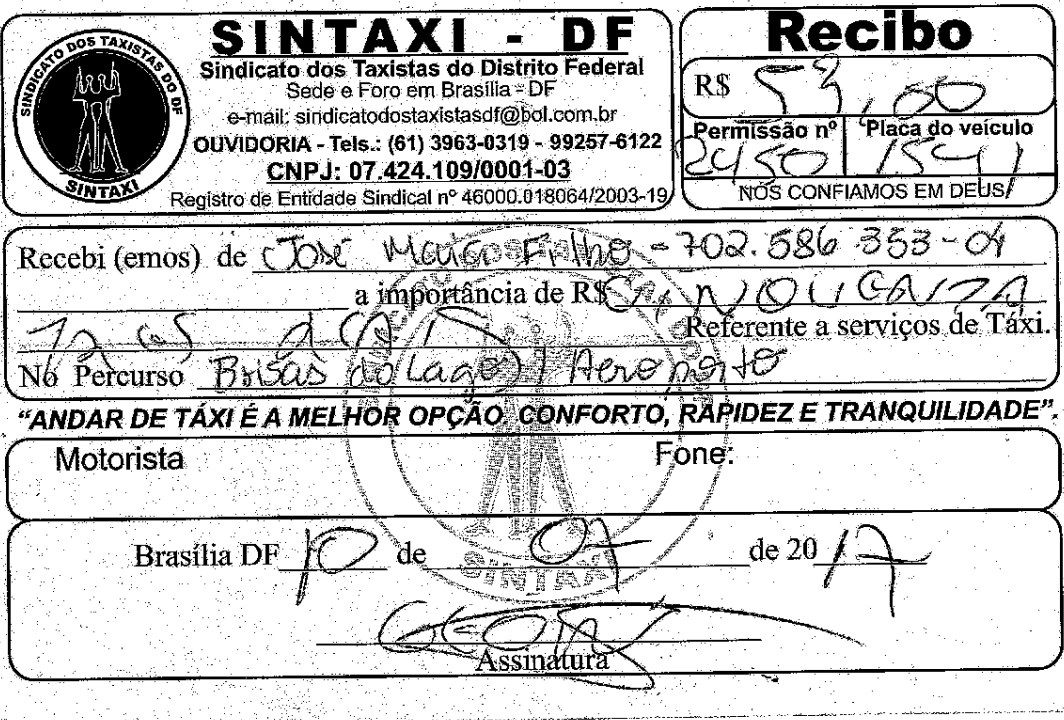 SINDICATO DOS TAXISTAS DO DF
SINTAXI
SINTAXI - DF
Sindicato dos Taxistas do Distrito Federal
Sede e Foro em Brasília - DF
e-mail: sindicatodostaxistasdf@bol.com.br
OUVIDORIA - Tels.: (61) 3963-0319 - 99257-6122
CNPJ: 07.424.109/0001-03
Registro de Entidade Sindical nº 46000.018064/2003-19
Recibo
R$ 53,00
Permissão nº Placa do veículo
2450 1541
NÓS CONFIAMOS EM DEUS
Recebi (emos) de José Filho - 702.586 353-04
a importância de R$
Referente a serviços de Táxi.
No Percurso Brisas do Lago / Aeroporto
“ANDAR DE TÁXI É A MELHOR OPÇÃO, CONFORTO, RAPIDEZ E TRANQUILIDADE”.
Motorista Fone:
Brasília DF 10 de 07 de 2017
SINTAXI
Assinatura